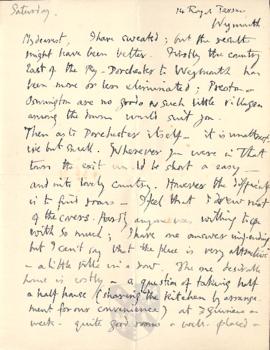 Saturday.
14 Royal Terrace
Weymouth
My dearest, I have sweated; but the results
might have been better. Firstly the country
East of the Rly - Dorchester to Weymouth has
been more or less eliminated; Preston &
Osmington are no good & such little villages
among the downs would suit you.
Then as to Dorchester itself — it is unattractive
but small. Wherever you were in that
town the exit would be short & easy —
and into lovely country. However the difficulty
is to find rooms — I feel that I drew most
of the covers. Hardly anyone was willing to do
with so much; I have one answer impending
but I can't say that the place is very attractive
— a little villa in a row. The one desirable
house is costly — a question of taking half
a half house (sharing the kitchen by arrange-
ment for our convenience) at 7 guineas a
week. quite good rooms & well-placed —